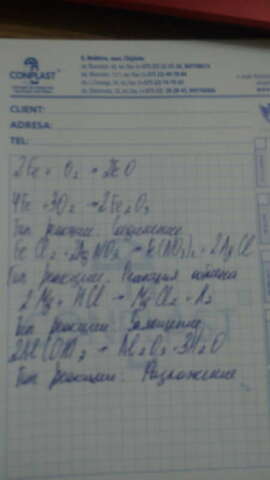 CONPLAST
CLIENT:
ADRESA:
TEL:
2Fe + O₂ → 2FeO
4Fe + 3O₂ → 2Fe₂O₃
Тип реакции: Соединение
FeCl₂ + 2AgNO₃ → Fe(NO₃)₂ + 2AgCl
Тип реакции: Реакция обмена
2Mg + HCl → MgCl₂ + H₂
Тип реакции: Замещение
2Al(OH)₃ → Al₂O₃ + 3H₂O
Тип реакции: Разложение